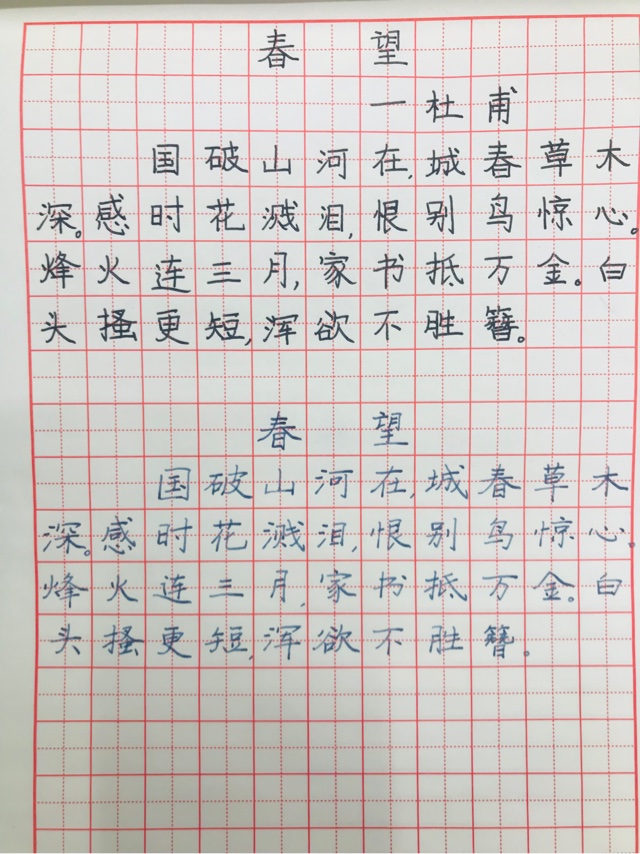 春望
一杜甫
国破山河在,城春草木
深。感时花溅泪,恨别鸟惊心。
烽火连三月,家书抵万金。白
头搔更短,浑欲不胜簪。
春望
国破山河在,城春草木
深。感时花溅泪,恨别鸟惊心。
烽火连三月,家书抵万金。白
头搔更短,浑欲不胜簪。